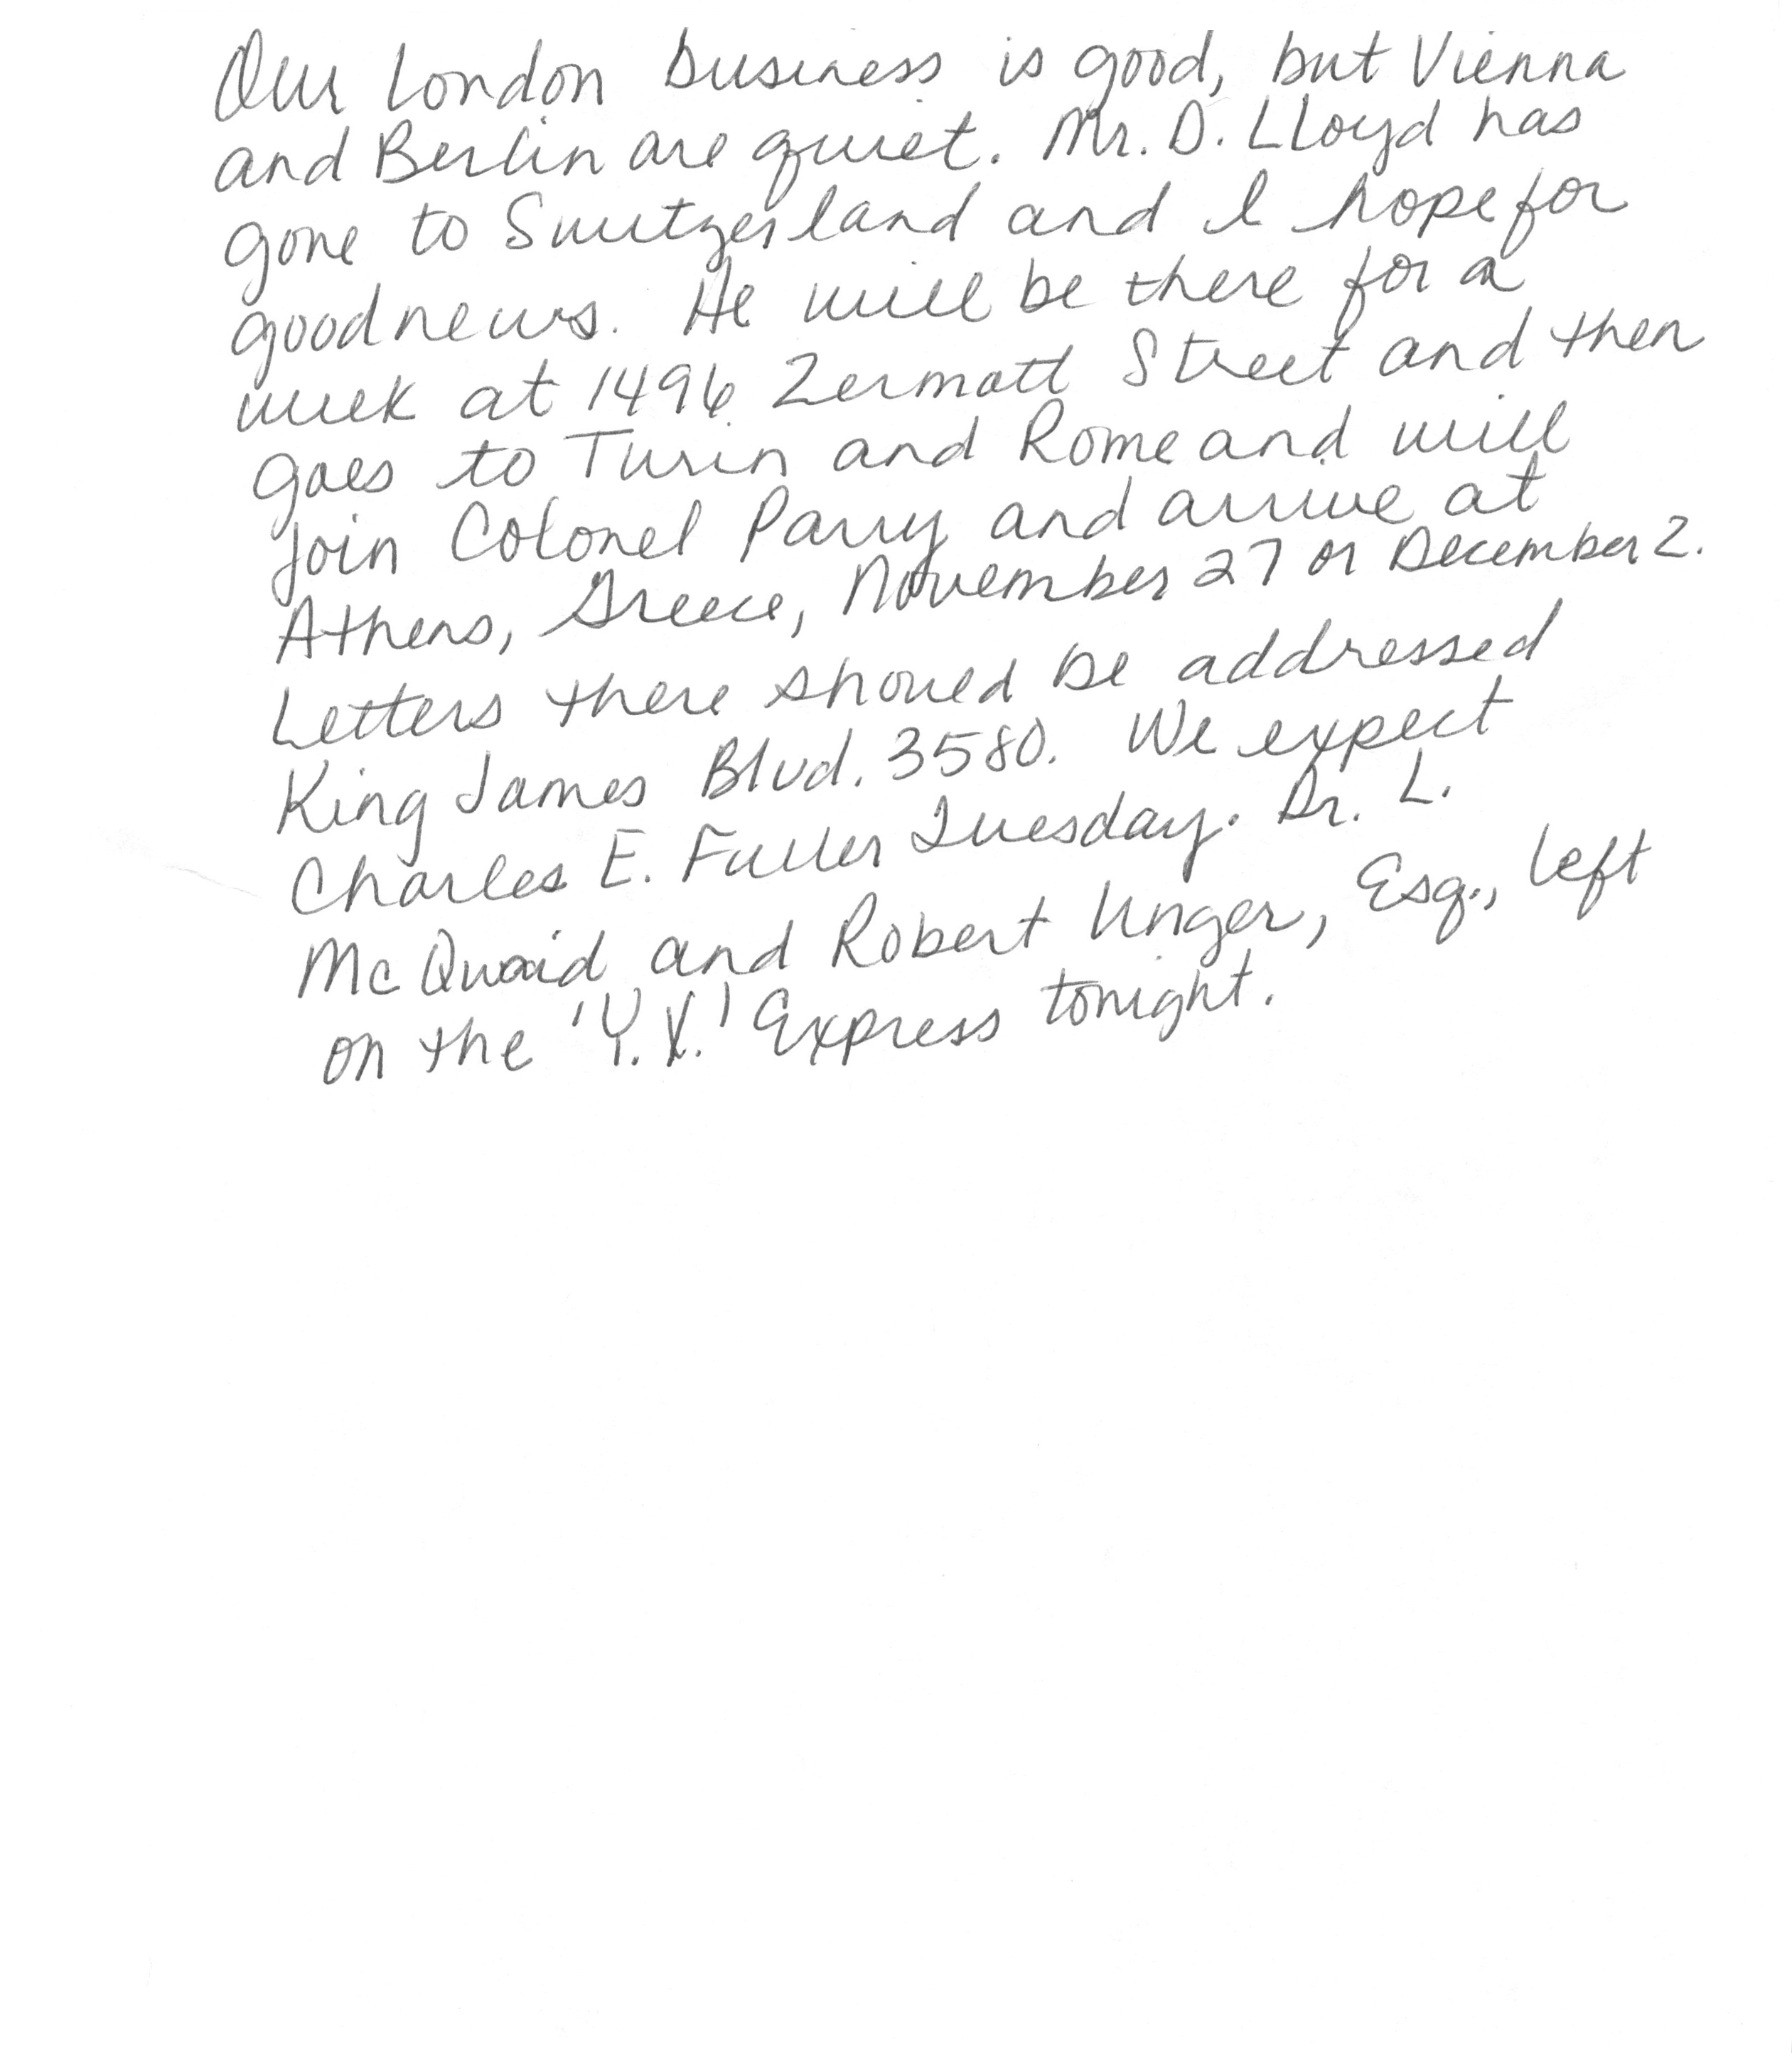 Our London business is good, but Vienna
and Berlin are quiet. Mr. D. Lloyd has
gone to Switzerland and I hope for
good news. He will be there for a
week at 1496 Zermatt Street and then
goes to Turin and Rome and will
join Colonel Parry and arrive at
Athens, Greece, November 27 or December 2.
Letters there should be addressed
King James Blvd. 3580. We expect
Charles E. Fuller Tuesday. Dr. L.
McQuaid and Robert Unger, Esq., left
on the 'Y.X.' Express tonight.